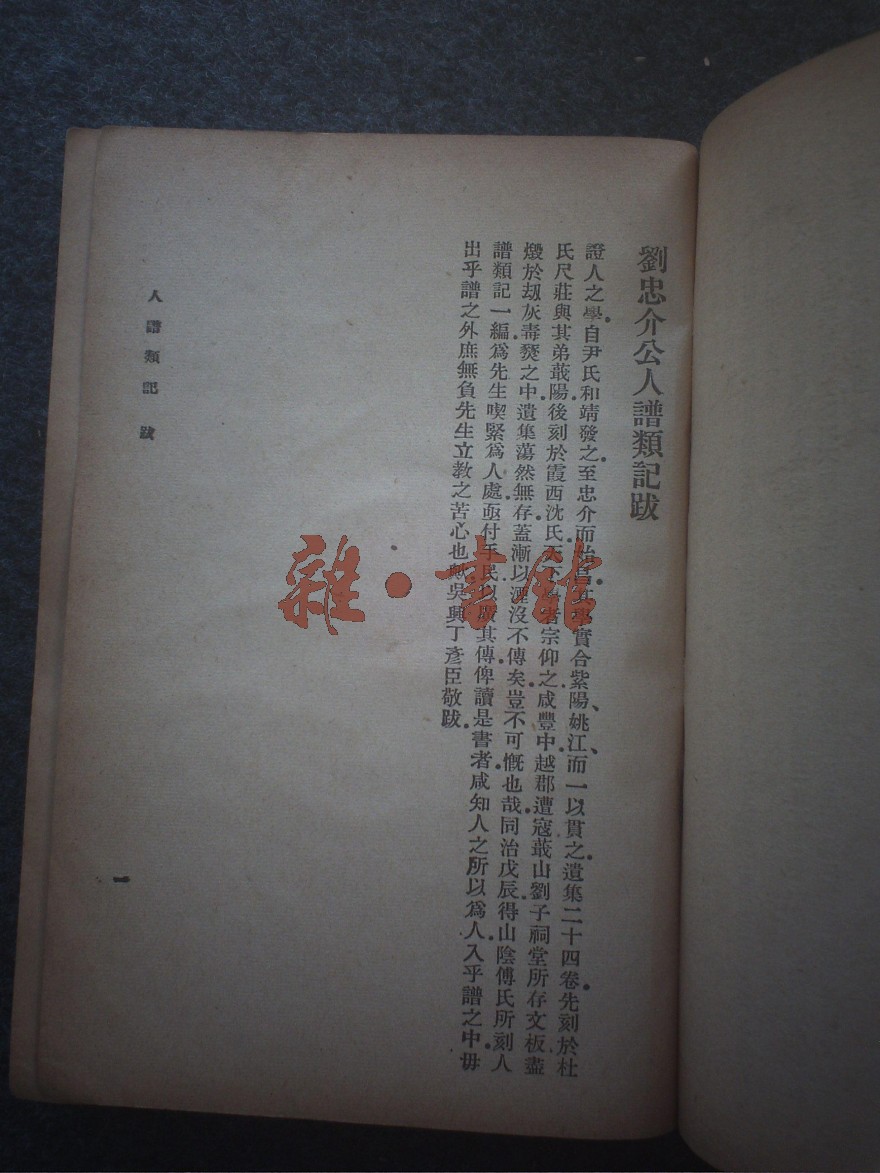 劉忠介公人譜類記跋
證人之學自尹氏和靖發之至忠介而始昌其學實合紫陽、姚江、而一以貫之遺集二十四卷先刻於杜
氏尺莊與其弟蕺陽後刻於霞西沈氏天下學者宗仰之咸豐中越郡遭寇蕺山劉子祠堂所存文板盡
燬於刼灰毒燹之中遺集蕩然無存蓋漸以湮沒不傳矣豈不可慨也哉同治戊辰得山陰傅氏所刻人
譜類記一編爲先生喫緊爲人處亟付手民以廣其傳俾讀是書者咸知人之所以爲人入乎譜之中毋
出乎譜之外庶無負先生立教之苦心也歟吳興丁彥臣敬跋
人譜類記 跋
一
雜·書館